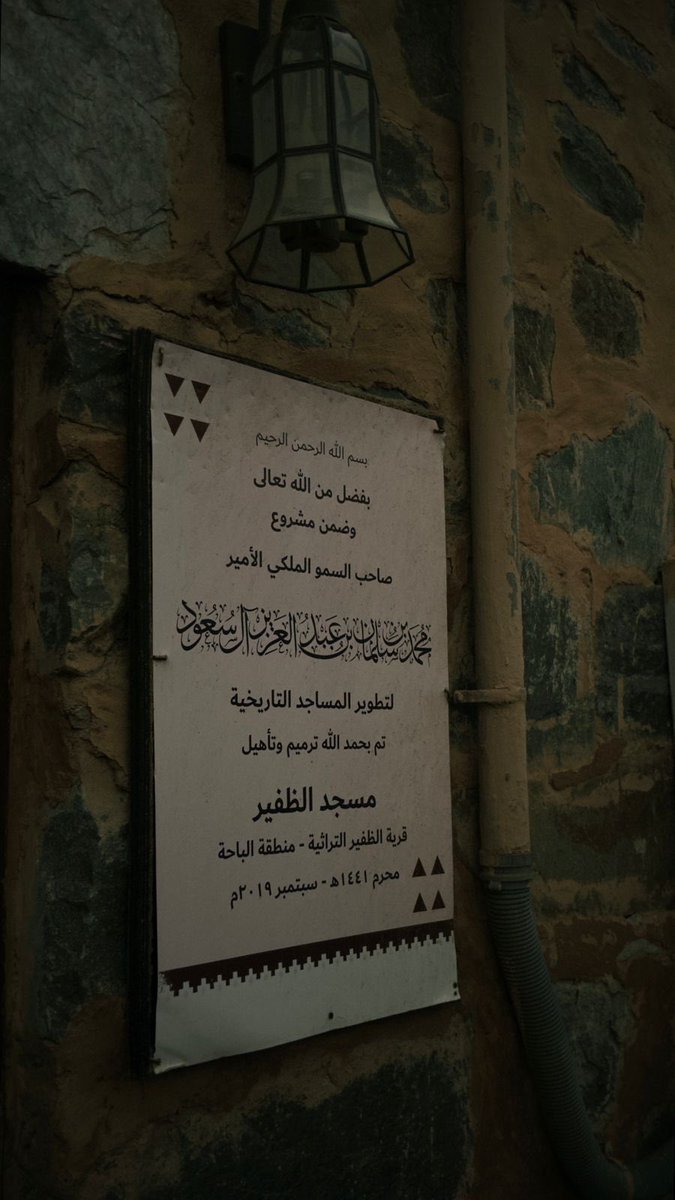 بسم الله الرحمن الرحيم
بفضل من الله تعالى
وضمن مشروع
صاحب السمو الملكي الأمير
محمد بن سلمان بن عبد العزيز آل سعود
لتطوير المساجد التاريخية
تم بحمد الله ترميم وتأهيل
مسجد الظفير
قرية الظفير التراثية - منطقة الباحة
محرم ١٤٤١هـ - سبتمبر ٢٠١٩م